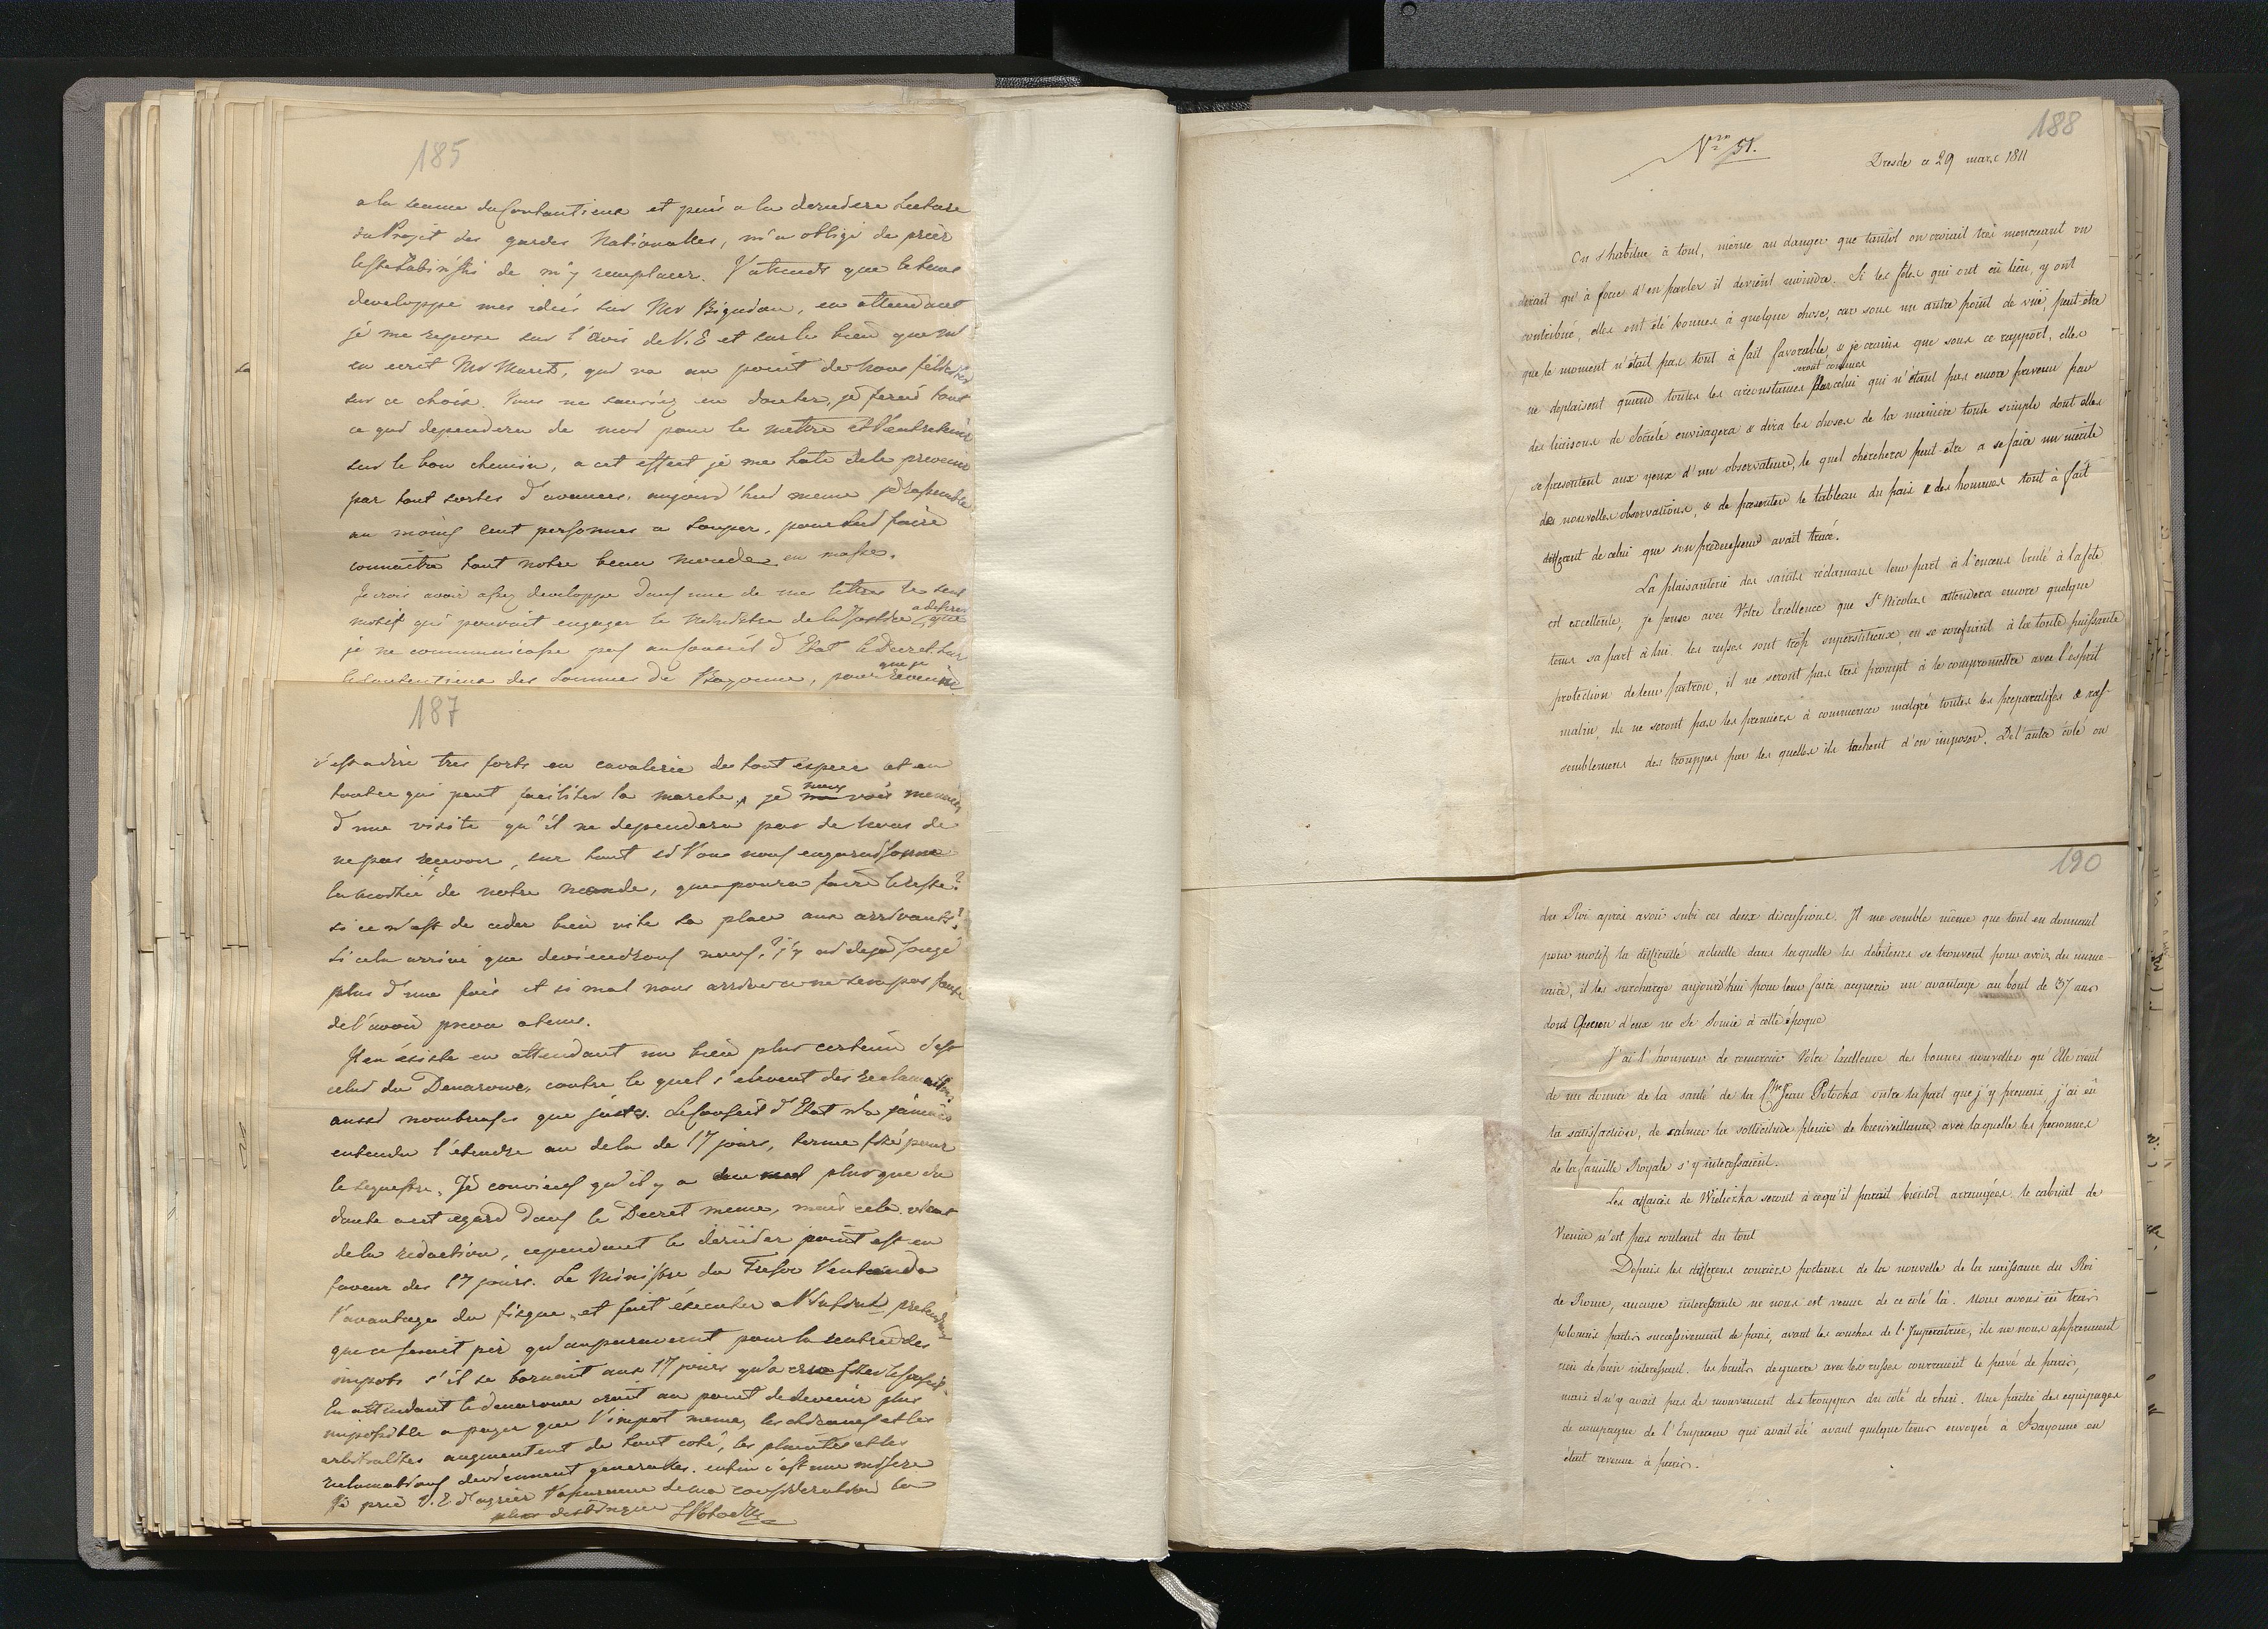 185
a la seance du Contentieux et puis a la derniere Lecture
du Projet des gardes Nationalles, m'a obligé de prier
de m'y remplacer. J'attends que le tems
developpe mes idées sur Mr Bigndon, en attendant
je me repose sur l'avis de V. E et sur le bien que m'
en ecrit Mr Maret, qui va au point de nous feliciter
sur ce choix. Vous ne sauriez en douter, je ferai tout
ce qui dependera de moi pour le mettre et l'entretenir
sur le bon chemin, a cet effet je me hate de le prevenir
par tout sortes d'avances, aujourd'hui meme je rassemble
au moins cent personnes a souper, pour lui faire
connaitre tout notre beau monde en masse.
Je crois avoir assez developpé dans une de mes lettres le seul
motif qui pouvait engager le Ministre de la Justice a desirer que
je ne communicasse pas au Conseil d'Etat le Decret sur
le Contentieux des Sommes de Bayonne, pour que je
187
c'est a dire tres forts en cavalerie de tout espece et en
toutce qui peut faciliter la marche, je nous vois menacés
d'une visite qu'il ne dependera pas de nous de
ne pas recevoir, sur tout si l'on nous engarnisonne
la moitié de notre monde, que poura faire le reste?
si ce n'est de ceder bien vite la place aux arrivants!
si cela arrive que deviendrons nous? j'y ai deja songé
plus d'une fois et si mal nous arrive ce ne sera pas faute
de l'avoir prevu a tems.
Il en existe en attendant un bien plus certain c'est
celui du Denarowe, contre le quel s'elevent des reclamations
aussi nombreuses que justes. Le Conseil d'Etat n'a jamais
entendu l'étendre au dela de 17 jours, terme fixé pour
le sequestre. Je conviens qu'il y a plus que du
doute a cet egard dans le Decret meme, mais cela vient
de la redaction, cependant le dernier point est en
faveur des 17 jours. Le Ministre du Tresor
l'avantage du fisque, et fait éxecuter pretendant
que ce serait pis qu'auparavant pour la rentrée des
impots s'il se bornait aux 17 jours qu'a cru fixer le Conseil.
En attendant le denarowe croit au point de devenir plus
impossible a payer que l'impot meme, les chicanes et les
arbitralités augmentent de tout coté, les plaintes et les
reclamations deviennent generales. enfin c'est une misere
Je prie V. E d'agréer l'assurance de ma consideration la
plus distinguée SPotocki
188
Nro 51.
Dresde ce 29 mars 1811
On s'habitue à tout, même au danger que tantôt on croiait très menaçant on
dirait qu'à force d'en parler il devient moindre. Si les fêtes qui ont eû lieu, y ont
contribué, elles ont été bonnes à quelque chose, car sous un autre point de vüe, peut-être
que le moment n'était pas tout à fait favorable, & je crains que sous ce rapport, elles
seront connues
ne deplaisent quand toutes les circonstances par celui qui n'étant pas encore prevenu par
des liaisons de Société envisagera & dira les choses de la manière toute simple dont elles
se presentent aux yeux d'un observateur, le quel cherchera peut-être a se faire un mérite
des nouvelles observations, & de presenter le tableau du païs & des hommes tout à fait
different de celui que son prédecesseur avait tracé.
La plaisanterie des saints réclamans leur part à l'encens brulé à la fête
est excellente, je pense avec Votre Excellence que St Nicolas attendera encore quelque
tems sa part à lui. les russes sont trop superstitieux, en se confiant à la toute puissante
protection de leur patron, il ne seront pas très prompt à le compromettre avec l'esprit
malin, ils ne seront pas les premiers à commencer malgré toutes les preparatifs & ras-
semblemens des trouppes par les quelles ils tachent d'en imposer. De l'autre coté on
190
du Roi après avoir subi ces deux discussions. Il me semble même que tout en donnant
pour motif la difficulté actuelle dans laquelle les débiteurs se trouvent pour avoir du nume-
raire, il les surcharge aujourd'hui pour leur faire acquerir un avantage au bout de 37 ans
dont aucun d'eux ne se soucie à cette époque
J'ai l'honneur de remercier Votre Excellence des bonnes nouvelles qu'Elle vient
de me donner de la santé de la Ctsse Jean Potocka outre la part que j'y prenais, j'ai eû
la satisfaction, de calmer la sollicitude pleine de bienveillance avec laquelle les personnes
de la famille Royale s'y interessaient.
Les affaires de Wieliczka seront à ce qu'il parait bientôt arrangées le cabinet de
Vienne n'est pas content du tout
Depuis les differens couriers porteurs de la nouvelle de la naissance du Roi
de Rome, aucune interessante ne nous est venue de ce coté là. Nous avons eû trois
polonais partis successivement de paris, avant les couches de l'Imperatrice, ils ne nous apprennent
rien de bien interessant. les bruits de guerre avec les russes courraient le pavé de paris,
mais il n'y avait pas de mouvement des trouppes du coté du rhin. Une partie des equipages
de campagne de l'Empereur qui avait été avant quelque tems envoyé à Bayonne en
était revenue à paris.